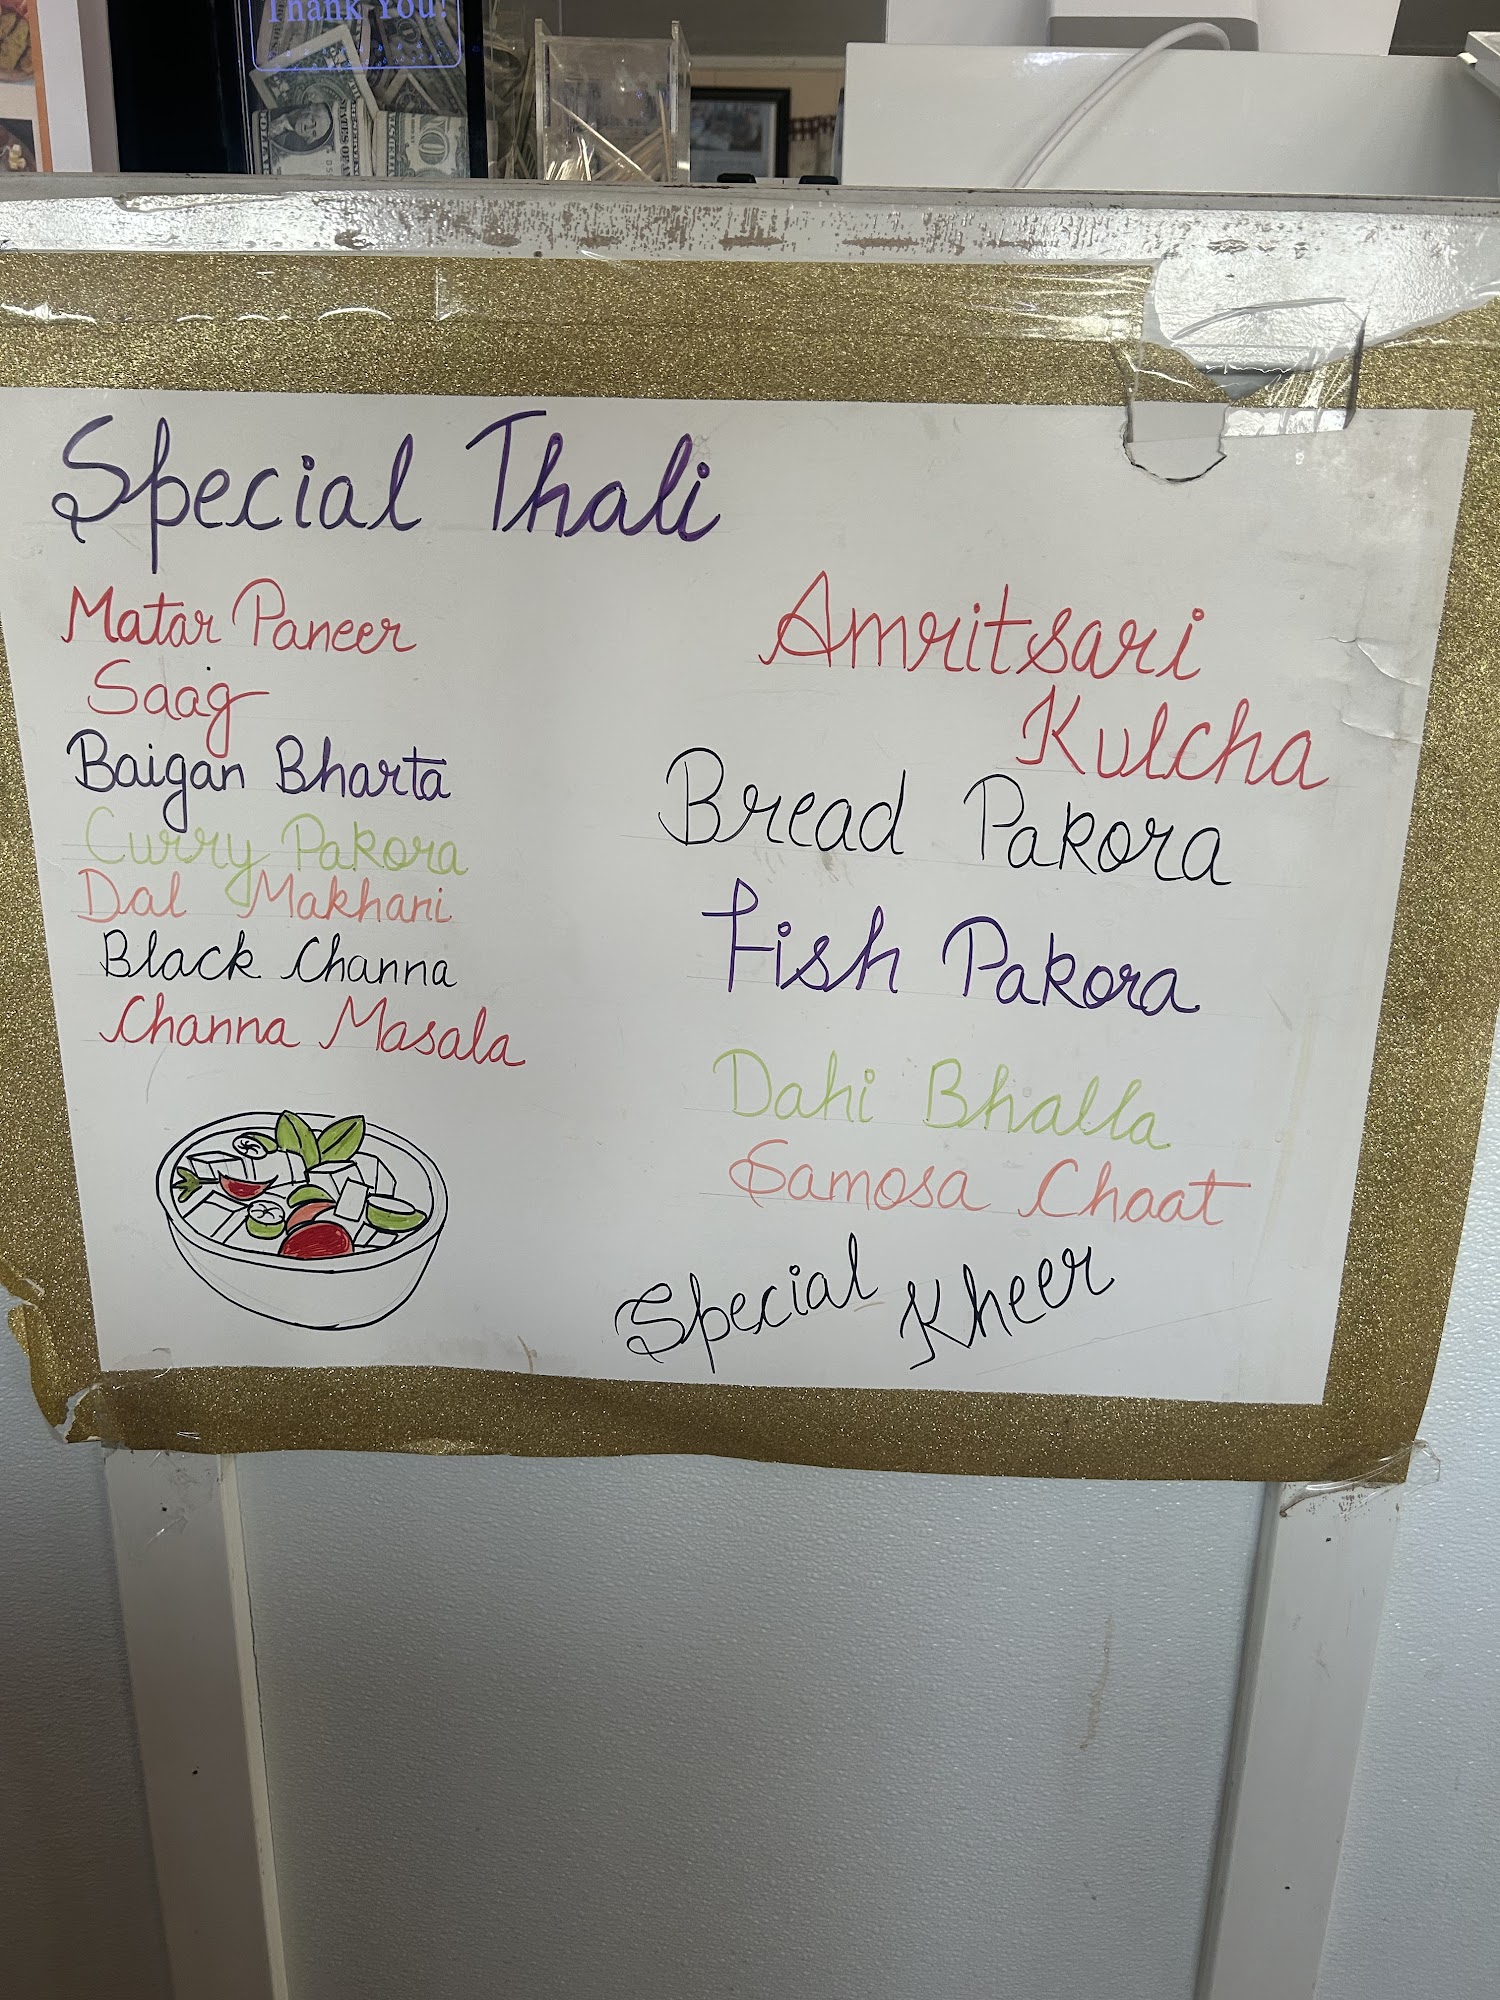 Thank You!
Special Thali
Matar Paneer
Saag
Baigan Bharta
Curry Pakora
Dal Makhani
Black Channa
Channa Masala
Amritsari
Kulcha
Bread Pakora
Fish Pakora
Dahi Bhalla
Samosa Chaat
Special Kheer